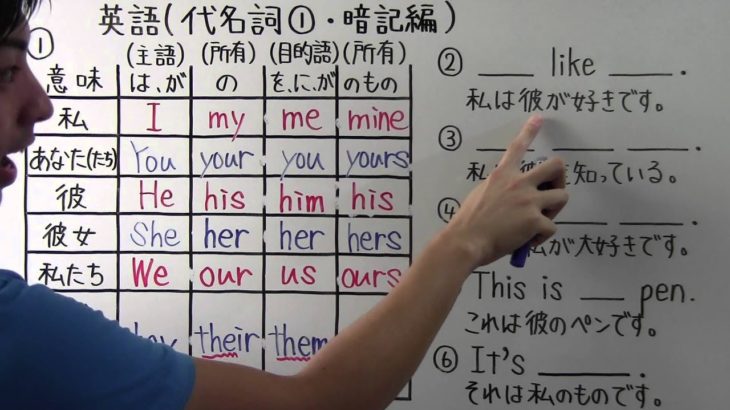 英語(代名詞①・暗記編)
①
(主語) (所有) (目的語) (所有)
意味 は、が の を、に、が のもの
私 I my me mine
あなた(たち) You your you yours
彼 He his him his
彼女 She her her hers
私たち We our us ours
their them
② ____ like ____.
私は彼が好きです。
③ ____ ____ ____.
知っている。
④
私が大好きです。
This is ___ pen.
これは彼のペンです。
⑥ It's ______.
それは私のものです。